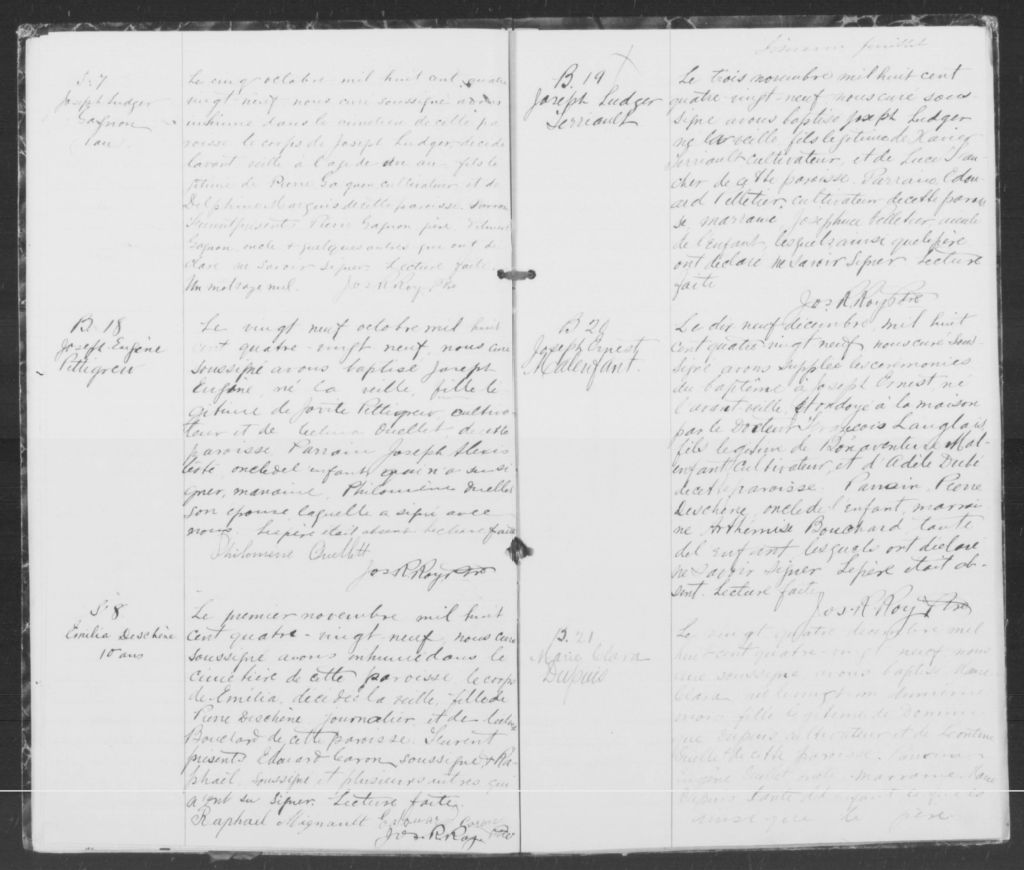 S. 7
Joseph Ludger
Gagnon
1 an
Le cinq octobre mil huit cent quatre
vingt-neuf nous curé soussigné avons
inhumé dans le cimetière de cette pa
roisse le corps de Joseph Ludger décédé
l'avant veille à l'age de un an fils lé
gitime de Pierre Gagnon cultivateur et de
Delphine de cette paroisse
Furent présents Pierre Gagnon père,
Gagnon, oncle & quelques autres qui ont dé
claré ne savoir signer Lecture faite.
Un mot rayé nul. Jos R. Roy Ptre
B. 18
Joseph Eugène
Pettigrew
Le vingt neuf octobre mil huit
cent quatre-vingt neuf, nous curé
soussigné avons baptisé Joseph
Eugène, né la veille, fille lé
gitime de Jovite Pettigrew, cultiva
teur et de Ouellet de cette
paroisse Parrain Joseph
oncle del enfant, qui n'a su si
gner, marraine, Philomène Ouellet
son épouse laquelle a signé avec
nous. Le père était absent. Lecture faite
Philomène Ouellet
Jos R Roy Ptre
S. 8
Emilia Deschêne
10 ans
Le premier novembre mil huit
cent quatre-vingt-neuf, nous curé
soussigné avons inhumé dans le
cimetière de cette paroisse le corps
de Emilia, décédée la veille, fille de
Pierre Deschêne journalier et de
Bouchard de cette paroisse. Furent
présents Edouard Caron soussigné & Ra
phaël, soussigné et plusieurs autres qui
n ont su signer. Lecture faite.
Raphael Mignault Edouard Caron
Jos R Roy Ptre
feuillet
B. 19
Joseph Ludger
Terriault
Le trois novembre mil huit cent
quatre-vingt-neuf nous curé sous
signé avons baptisé Joseph Ludger
né la veille, fils légitime de Xavier
Terriault cultivateur, et de Luce
de cette paroisse. Parrain, Edou
ard Pelletier, cultivateur de cette parois
se marraine Josephine Pelletier
de l'Enfant, lesquels ainsi que le père
ont déclaré ne savoir signer Lecture
faite
Jos. R. Roy Ptre
B. 20
Joseph Ernest
Malenfant.
Le dix neuf décembre, mil huit
cent quatre vingt neuf nous curé sous
signé avons supplée les cérémonies
du baptême à Joseph Ernest né
l'avant veille, et ondoyé à la maison
par le Docteur François Langlais,
fils légitime de Bonaventure Mal
enfant, cultivateur, et d'Adèle Dubé
de cette paroisse. Parrain, Pierre
Deschêne, oncle de l'Enfant, marrai
ne Arthémise Bouchard tante
del Enfant lesquels ont déclaré
ne savoir signer Le père était ab-
sent. Lecture faite
Jos-R. Roy Ptre
B. 21
Marie Clara
Dupuis
Le vingt quatre décembre mil
huit-cent quatre-vingt neuf nous
curé soussigné, avons baptisé Marie
Clara
fille légitime de Domini
que Dupuis cultivateur et de
de cette paroisse. Parrain
marraine, Marie
Dupuis tante del enfant lesquels
ainsi que le père